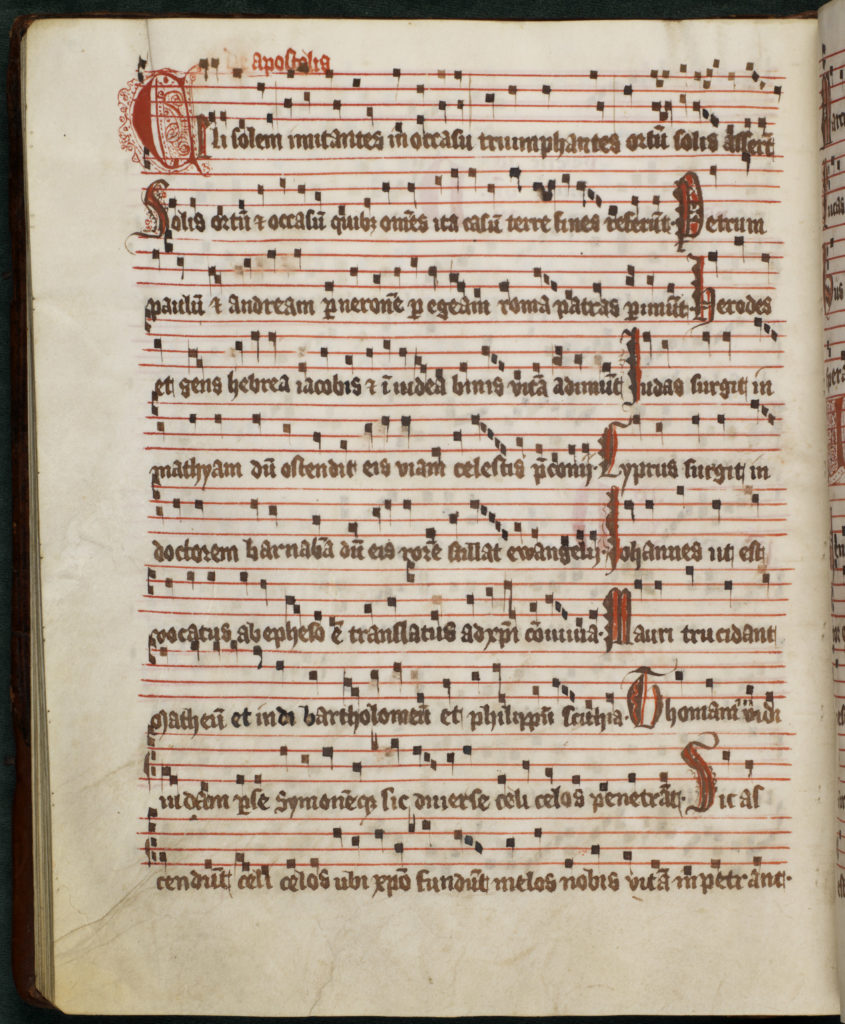 de apostolis
Celi solem imitantes in occasu triumphantes ortū solis asserūt
Solis ortū ⁊ occasū quibꝫ omēs ita casū terre fines referūt· Petrum
paulū ⁊ andream ꝑ neronē ꝑ egeam roma patras ꝑimūt· Herodes
et gens hebrea iacobis ⁊ ī iudea binis vitā adimūt Iudas surgit in
mathyam dū ostendit eis viam celestis p̄conij· Cyprus surgit in
doctorem barnabā dū eis rorē stillat ewangelij· Iohannes ut est
vocatus ab epheso ē translatus ad xp̄i cōuiuia· Mauri trucidant
Matheū et indi bartholomeū et philippū scithia· Thomam vidi
iudeam ꝑse Symonēqꝫ sic diuerse celi celos penetrāt· Sic as
cendūt celi celos ubi xpō fundūt melos nobis vitā inpetrant·